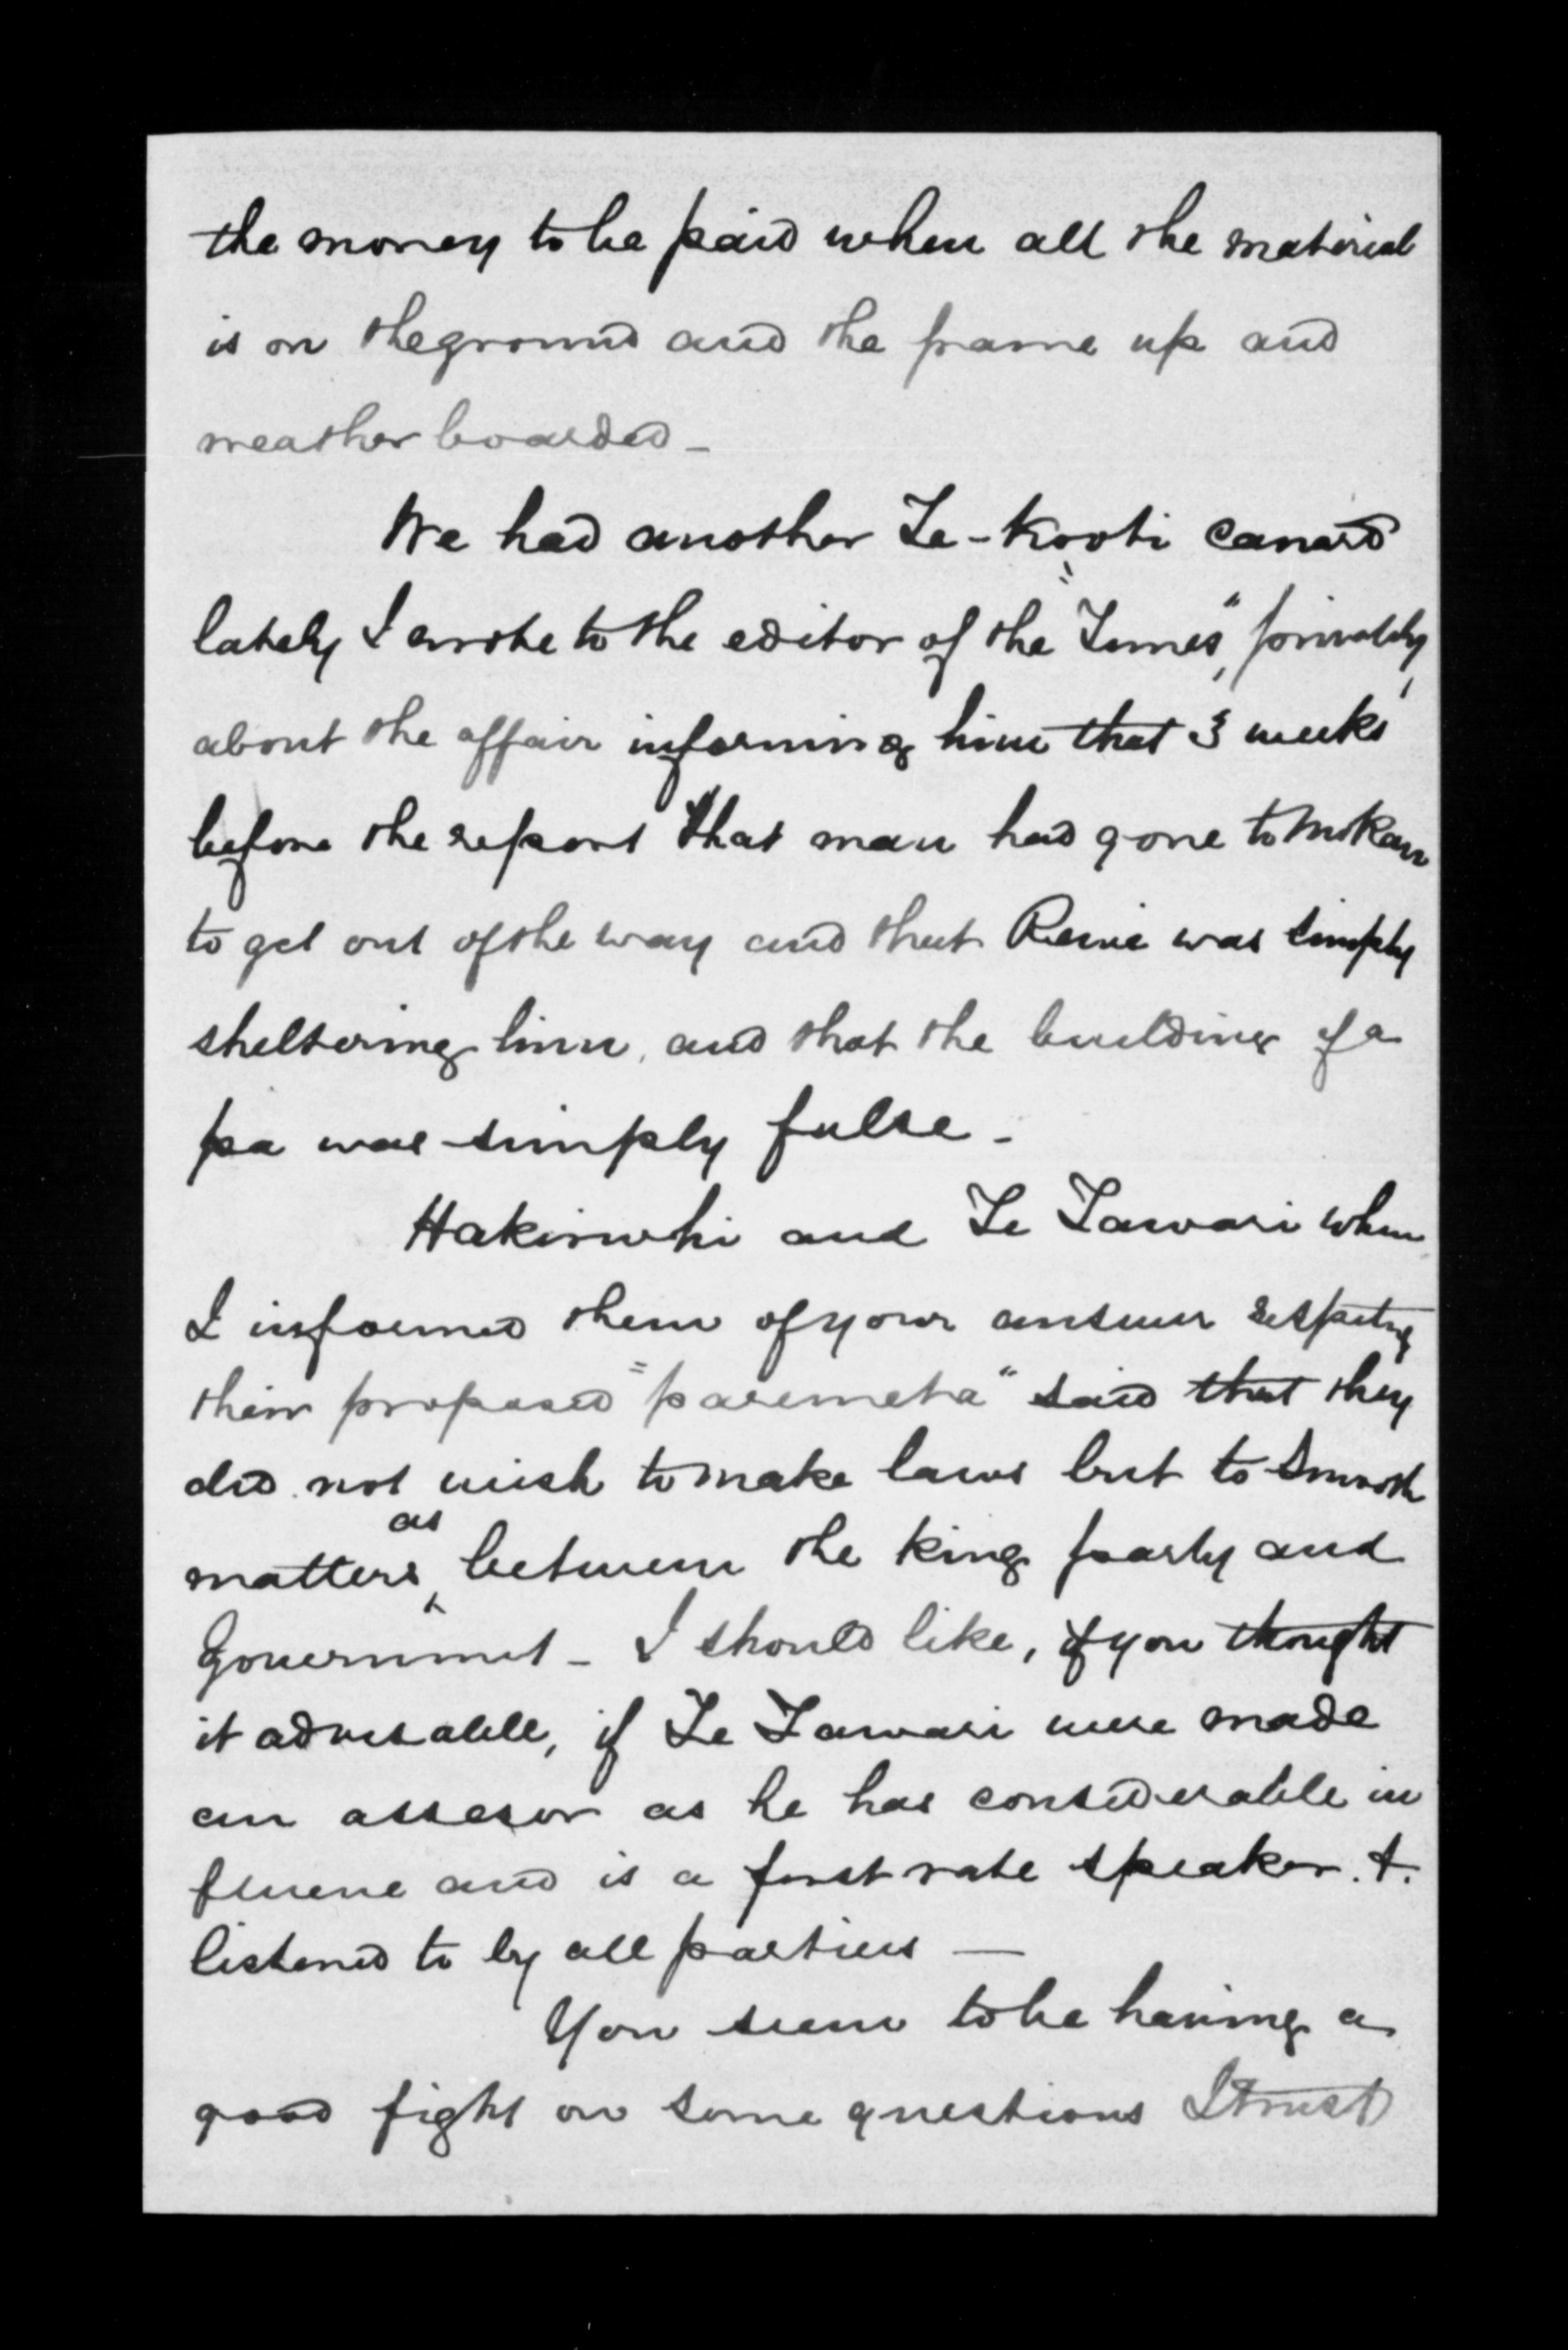 the money to be paid when all the material
is on the ground and the frame up and
weather boarded -
We had another Te-Kooti canard
lately I wrote to the editor of the "Times", privately,
about the affair informing him that 3 weeks
before the report that man had gone to Mokau
to get out of the way and that Rewi was simply
sheltering him, and that the building of a
pa was simply false -
Hakiriwhi and Te Tawari when
I informed them of your answer respecting
their proposed "paremeta" said that they
did not wish to make laws but to smooth
matters as between the king party and
Government - I should like, if you thought
it advisable, if Te Tawari were made
an assesor as he has considerable in
fluence and is a first rate speaker. &.
listened to by all parties —
You seem to be having a
good fight on some questions I trust